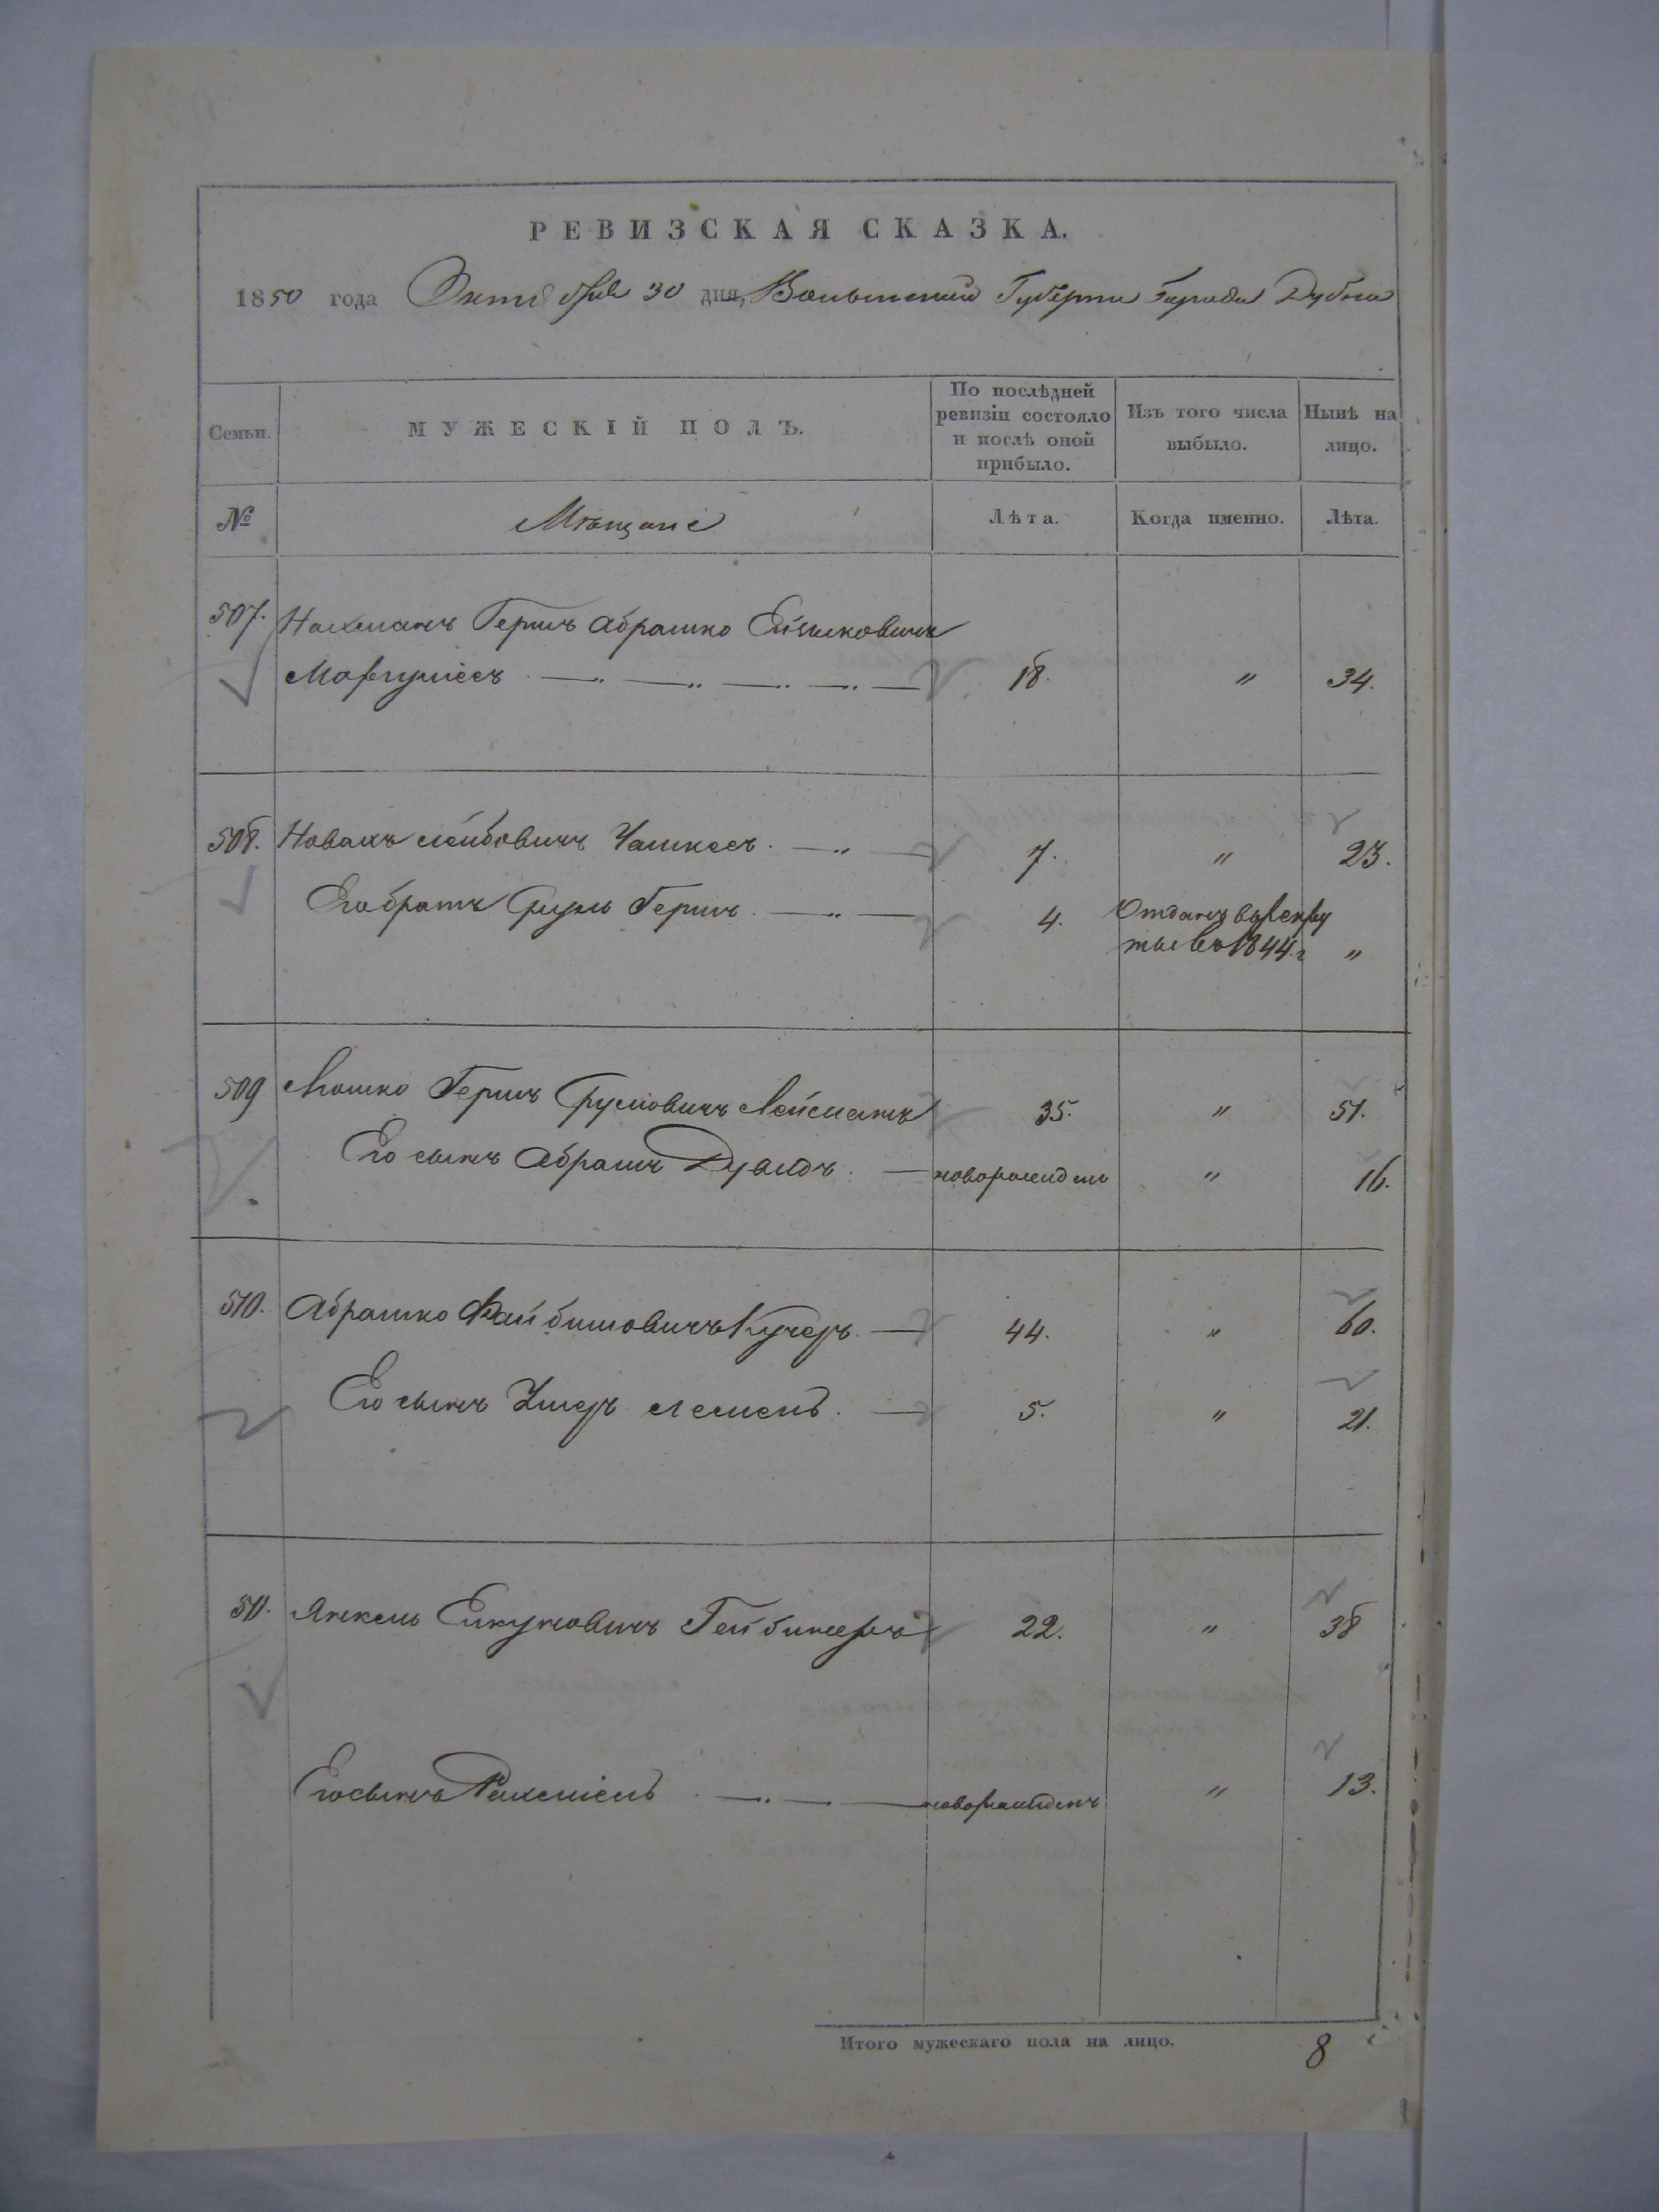 РЕВИЗСКАЯ СКАЗКА.
1850 года Октября 30 дня, Волынской Губернии Города Дубна
Семьи. МУЖЕСКІЙ ПОЛЪ. По послѣдней ревизіи состояло и послѣ оной прибыло. Изъ того числа выбыло. Нынѣ на лицо.
№ Мѣщане Лѣта. Когда именно. Лѣта.
507. Нахманъ Гершъ Абрашко
Маргулисъ 18. " 34.
508. Новахъ Лейбовичъ Чашкесъ. 7. " 23.
Его братъ Сруль Гершъ. 4. Отданъ в рекру
ты въ 1844 г "
509 Мошко Гершъ Срулювичъ 35. " 51.
Его сынъ Абрамъ Дувидъ. новорожденъ " 16.
510. Абрашко Файбишовичъ Кучеръ. 44. " 60.
Его сынъ 5. " 21.
511. Янкель 22. " 38
Его сынъ новорожденъ " 13.
Итого мужескаго пола на лицо. 8